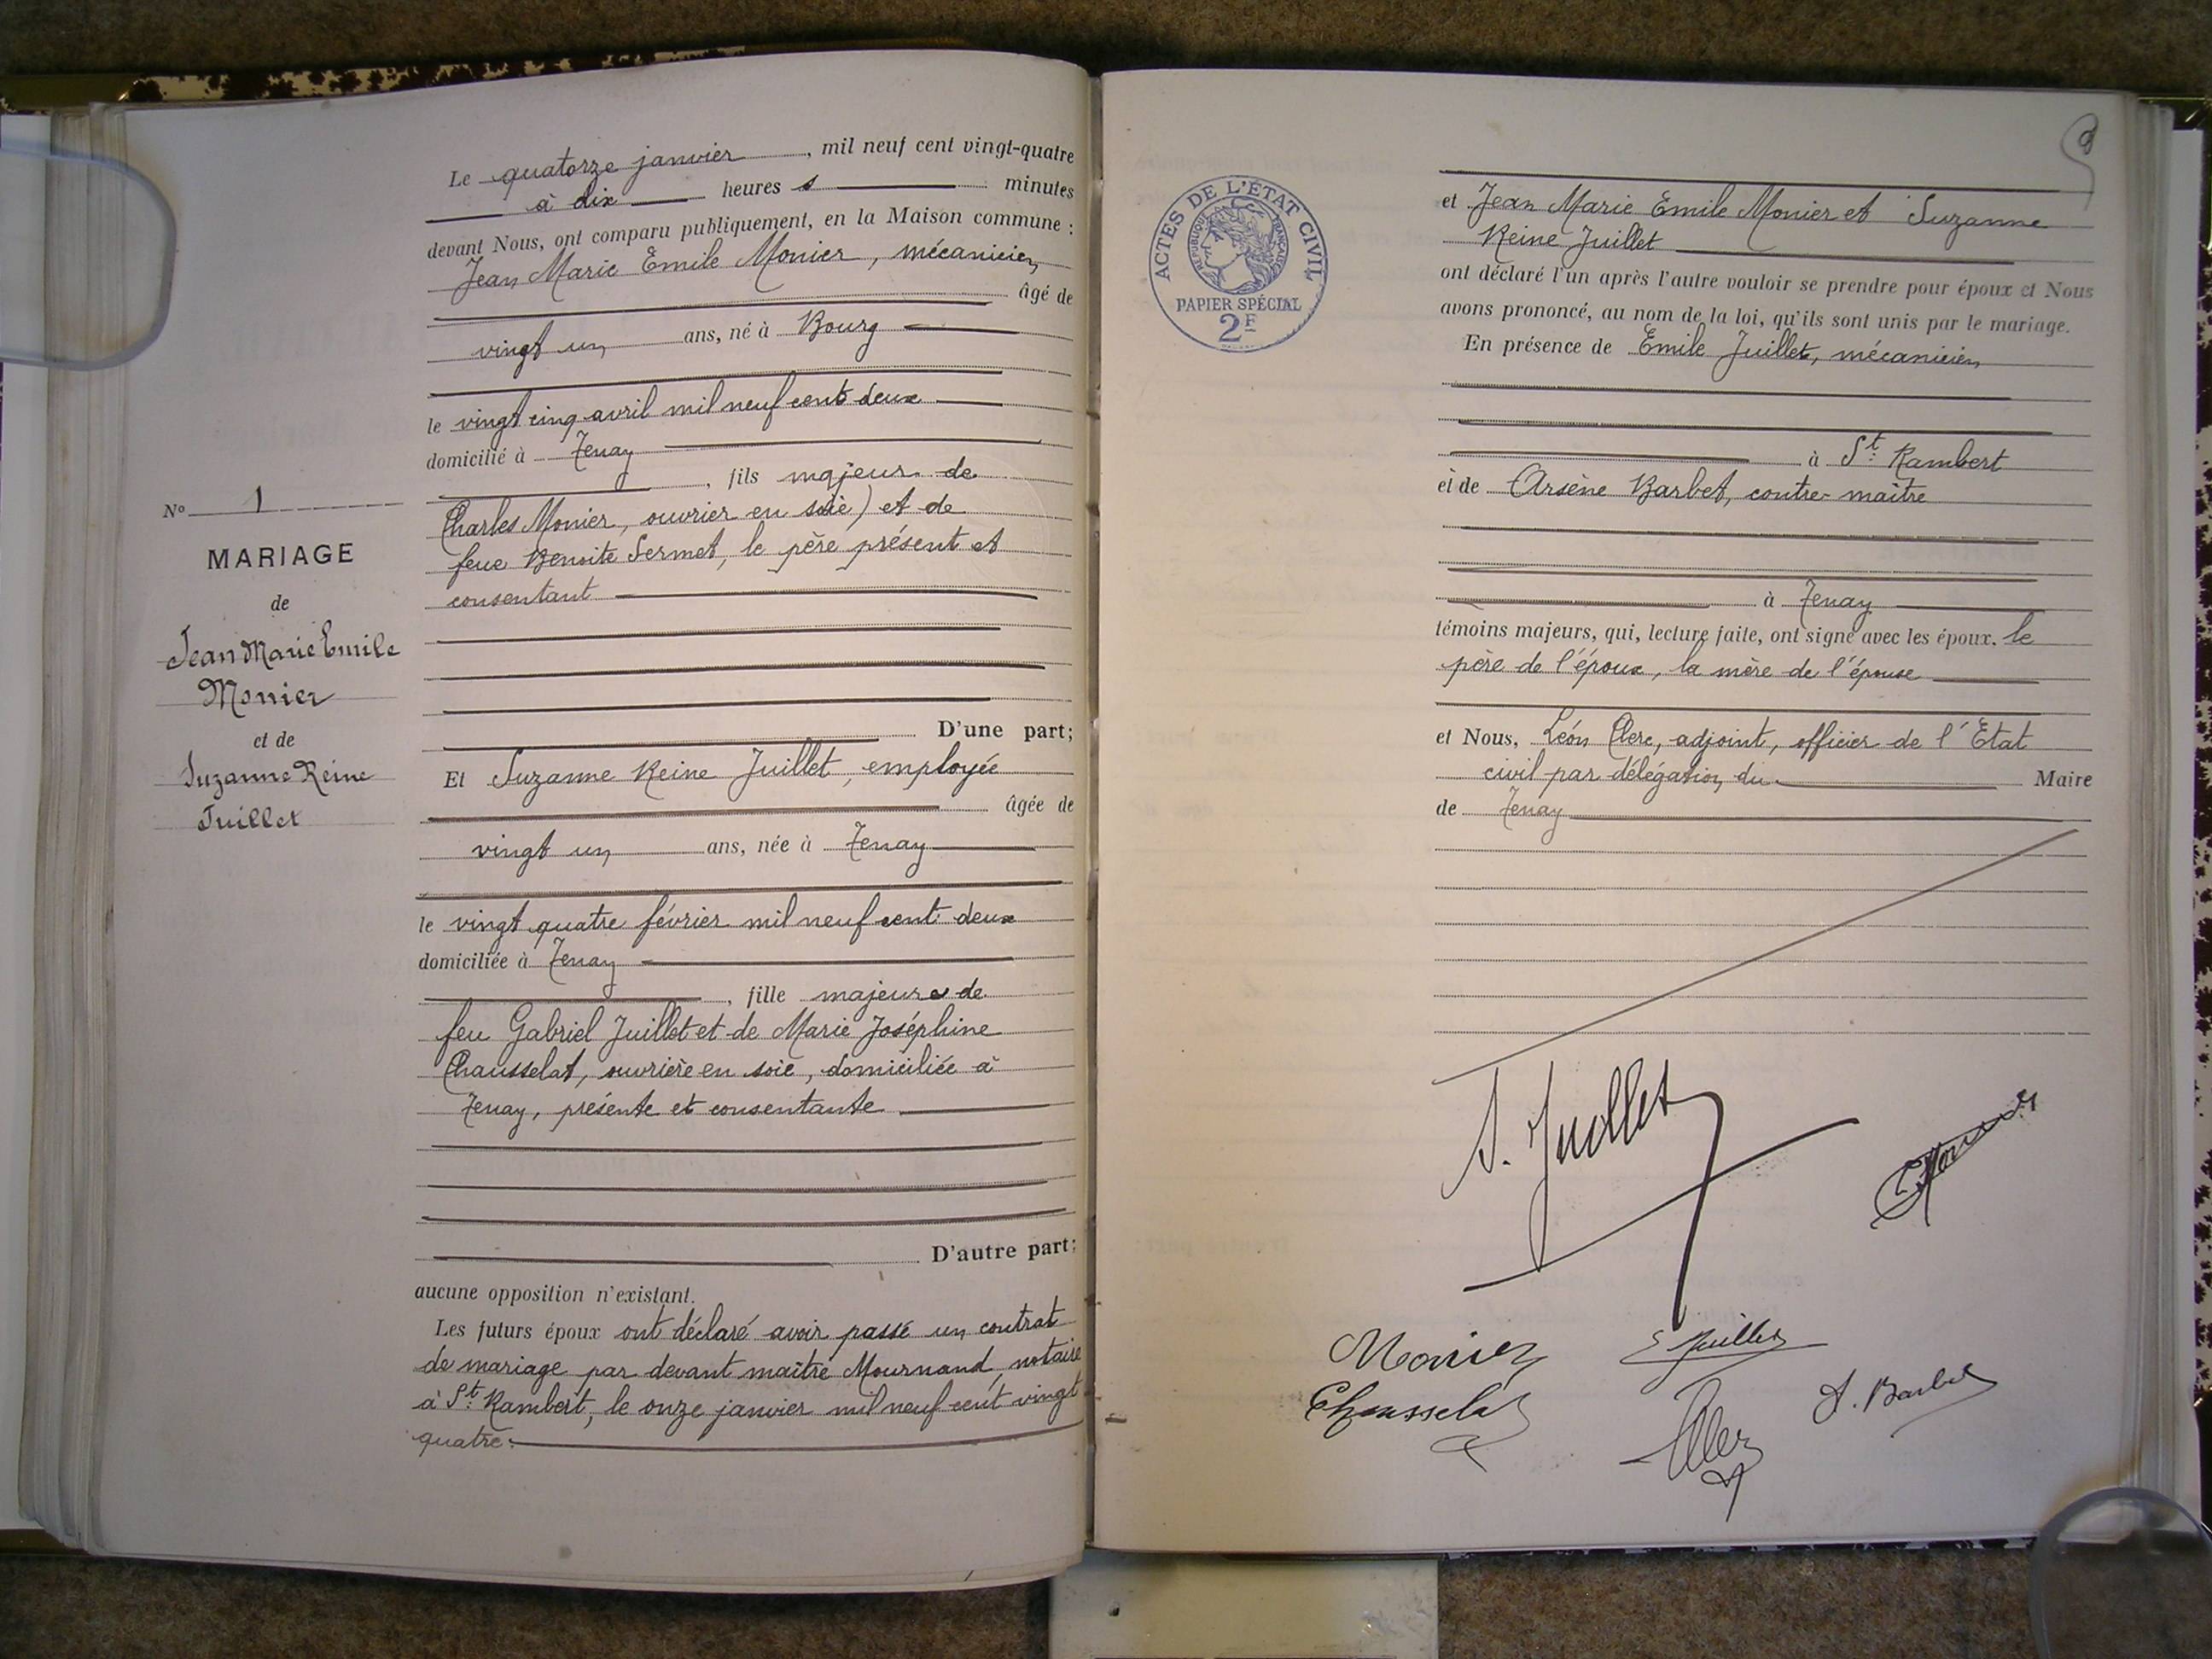 Le quatorze janvier, mil neuf cent vingt-quatre
à dix heures minutes
devant Nous, ont comparu publiquement, en la Maison commune :
Jean Marie Emile Monier, mécanicien
âgé de
vingt un ans, né à Bourg
le vingt cinq avril mil neuf cent deux
domicilié à Tenay
, fils majeur de
Charles Monier, ouvrier en soie) et de
feue Benoite Sermet, le père présent et
consentant
D'une part;
Et Suzanne Reine Juillet, employée
âgée de
vingt un ans, née à Tenay
le vingt quatre février mil neuf cent deux
domiciliée à Tenay
, fille majeure de
feu Gabriel Juillet et de Marie Joséphine
Chausselat, ouvrière en soie, domiciliée à
Tenay, présente et consentante
D'autre part;
aucune opposition n'existant.
Les futurs époux ont déclaré avoir passé un contrat
de mariage par devant maître Mournand, notaire
à St. Rambert, le onze janvier mil neuf cent vingt
quatre.
No 1
MARIAGE
de
Jean Marie Emile
Monier
et de
Suzanne Reine
Juillet
ACTES DE L'ÉTAT CIVIL
RÉPUBLIQUE FRANÇAISE
PAPIER SPÉCIAL
2F
et Jean Marie Emile Monier et Suzanne
Reine Juillet
ont déclaré l'un après l'autre vouloir se prendre pour époux et Nous
avons prononcé, au nom de la loi, qu'ils sont unis par le mariage.
En présence de Emile Juillet, mécanicien
à St. Rambert
et de Arsène Barbet, contre-maître
à Tenay
témoins majeurs, qui, lecture faite, ont signé avec les époux, le
père de l'époux, la mère de l'épouse
et Nous, Léon Clerc, adjoint, officier de l'Etat
civil par délégation du Maire
de Tenay
S. Juillet
Monier
E Juillet
Chausselat
A. Barbet